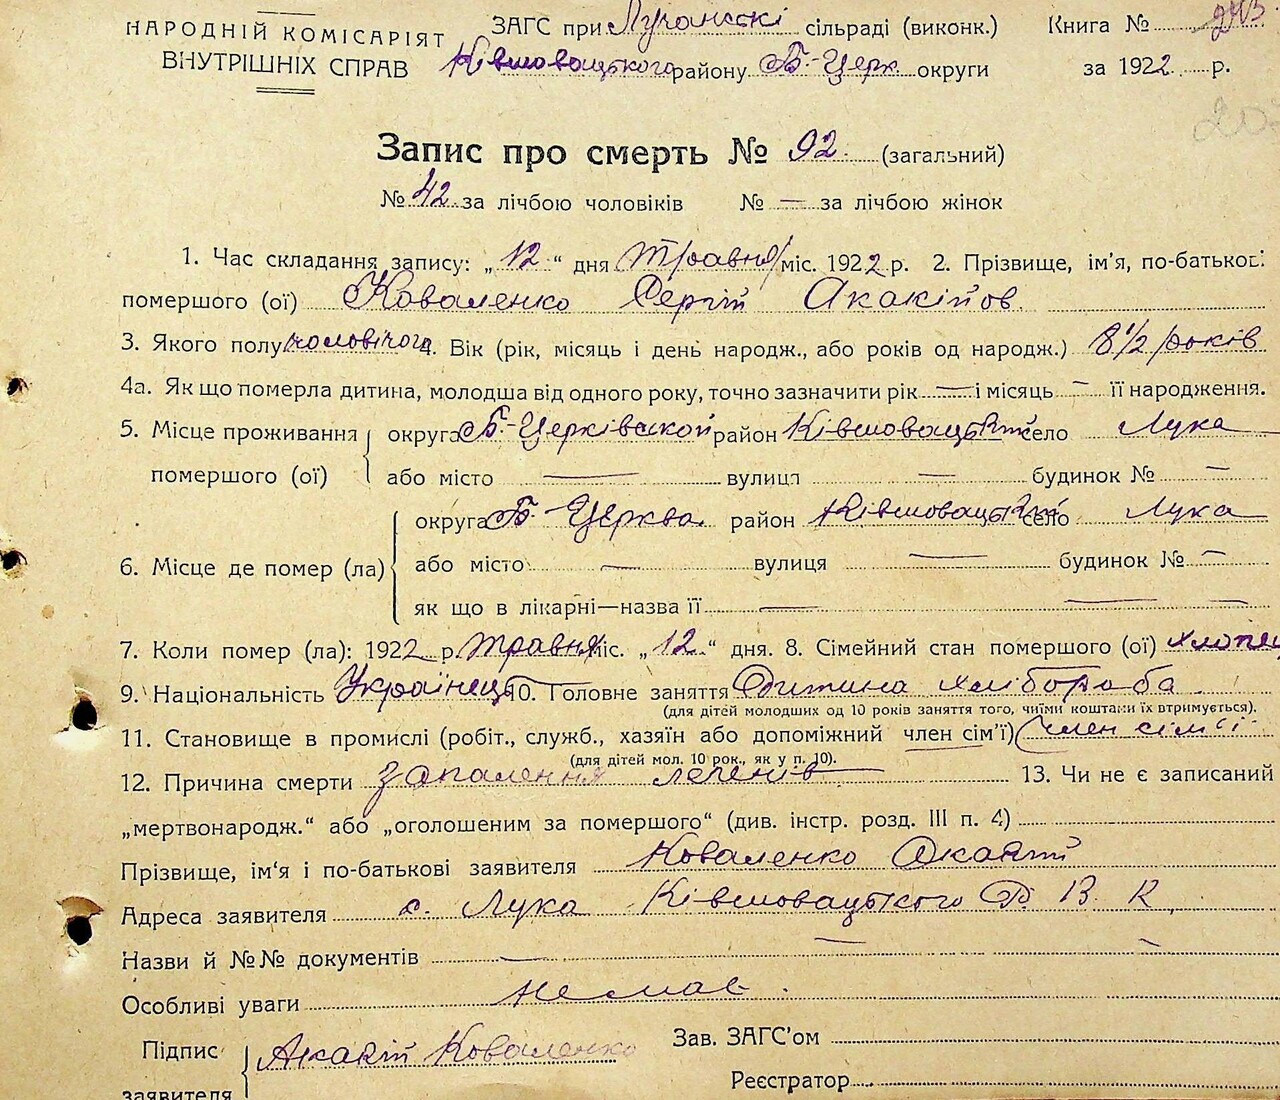 НАРОДНІЙ КОМІСАРІЯТ
ВНУТРІШНІХ СПРАВ
ЗАГС при Лучанські сільраді (виконк.) Книга №
Ківшовацького району Б-Церк округи за 1922 р.
Запис про смерть № 92 (загальний)
№ 42 за лічбою чоловіків № — за лічбою жінок
1. Час складання запису: „12“ дня травня міс. 1922 р. 2. Прізвище, ім'я, по-батькові
помершого (ої) Коваленко Сергій Акакійов.
3. Якого полу чоловічого 4. Вік (рік, місяць і день народж., або років од народж.) 8 1/2 років
4а. Як що померла дитина, молодша від одного року, точно зазначити рік — і місяць — її народження.
5. Місце проживання помершого (ої) округа Б-Церківской район Ківшовацький село Лука
або місто — вулиця — будинок № —
6. Місце де помер (ла) округа Б-Церква район Ківшовацький село Лука
або місто — вулиця — будинок № —
як що в лікарні—назва її — — —
7. Коли помер (ла): 1922 р. травня міс. „12“ дня. 8. Сімейний стан помершого (ої)
9. Національність Українець 10. Головне заняття Дитина хлібороба
(для дітей молодших од 10 років заняття того, чиїми коштами їх втримується).
11. Становище в промислі (робіт., служб., хазяїн або допоміжний член сім'ї) член сім'ї
(для дітей мол. 10 рок., як у п. 10).
12. Причина смерти запалення легенів 13. Чи не є записаний
„мертвонародж.“ або „оголошеним за помершого“ (див. інстр. розд. III п. 4)
Прізвище, ім'я і по-батькові заявителя Коваленко Акакій
Адреса заявителя с. Лука Ківшовацького Р. В. К.
Назви й №№ документів — — —
Особливі уваги немає.
Підпис заявителя Акакій Коваленко
Зав. ЗАГС'ом
Реєстратор